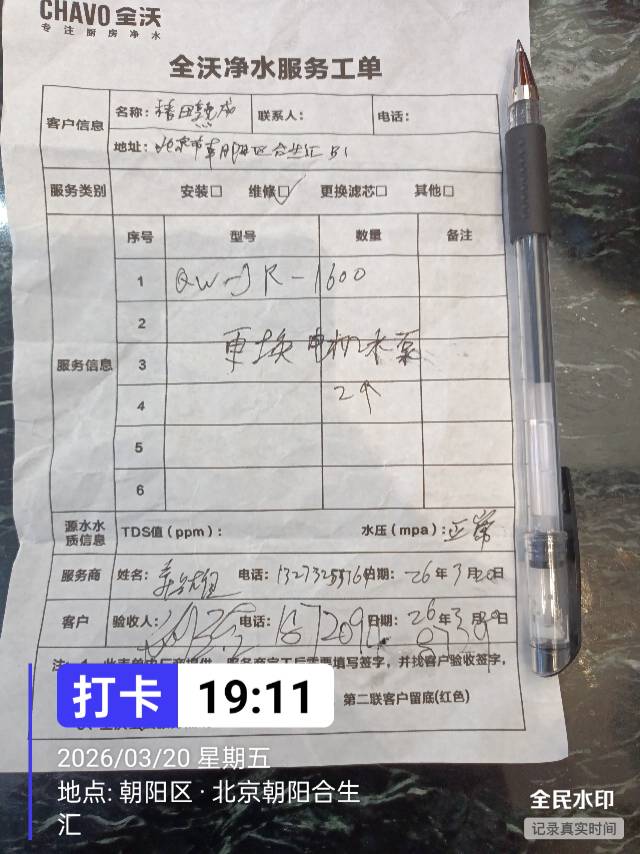 CHAVO 全沃
专注厨房净水
全沃净水服务工单
客户信息 名称: 联系人: 电话:
地址: 北京市朝阳区合生汇 B1
服务类别 安装□ 维修□✓ 更换滤芯□ 其他□
服务信息 序号 型号 数量 备注
1 QW-JR-1600
2
3 更换电机水泵
4 2个
5
6
源水水质信息 TDS值(ppm): 水压(mpa): 正常
服务商 姓名: 电话: 日期: 26年3月20日
客户 验收人: 电话: 日期: 26年3月20日
服务商完工后需要填写签字,并找客户验收签字,
第二联客户留底(红色)
打卡 19:11
2026/03/20 星期五
地点: 朝阳区 · 北京朝阳合生
汇
全民水印
记录真实时间